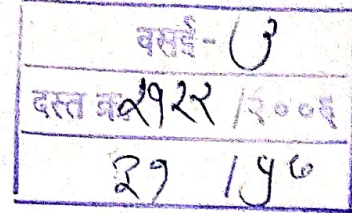 वसई- ७
दस्त क्र २१२२ /२००६
३१ / ५७